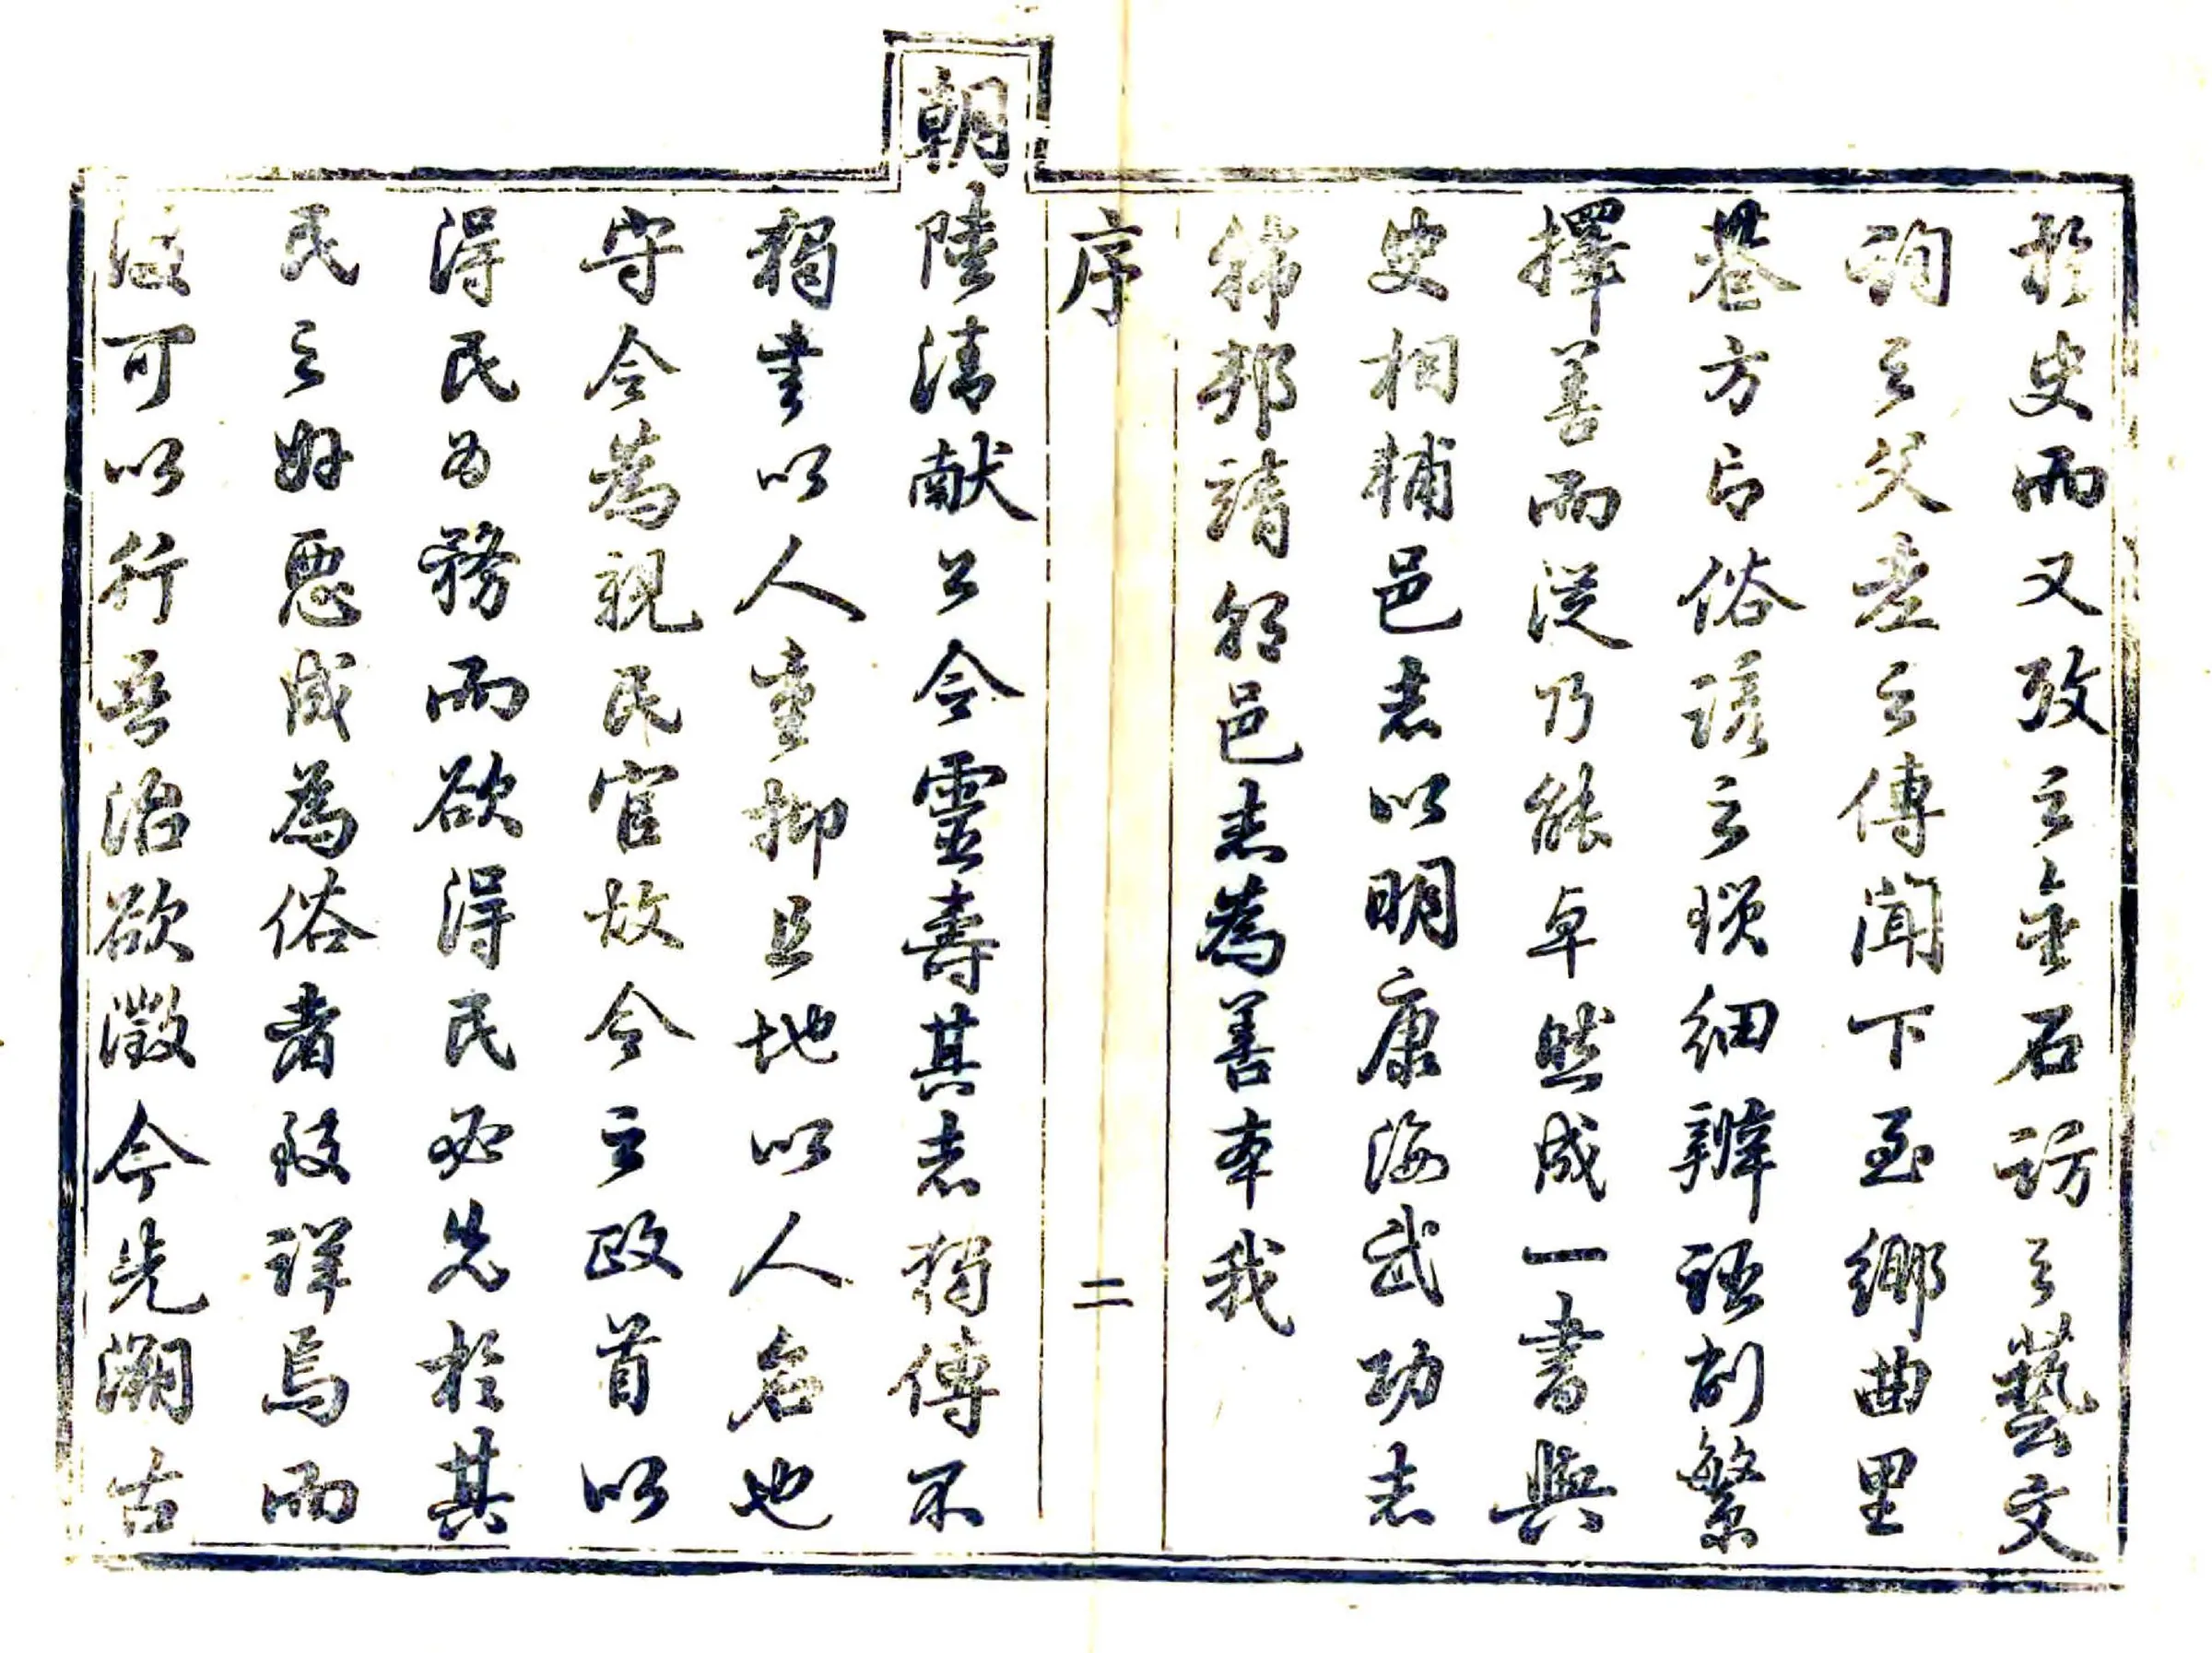 於史而又攷之金石訪之藝文
詢之父老之傳聞下至鄉曲里
巷方言俗諺之瑣細辨譌削繁
擇善而從乃能卓然成一書與
史相輔邑志以明康海武功志
韓邦靖朝邑志為善本我
序
二
朝陸清献公令靈壽其志獨傳不
獨書以人重抑且地以人名也
守令為親民官故令之政首以
得民為務而欲得民必先於其
民之好惡咸為俗者致詳焉而
後可以行吾治欲徵今先溯古